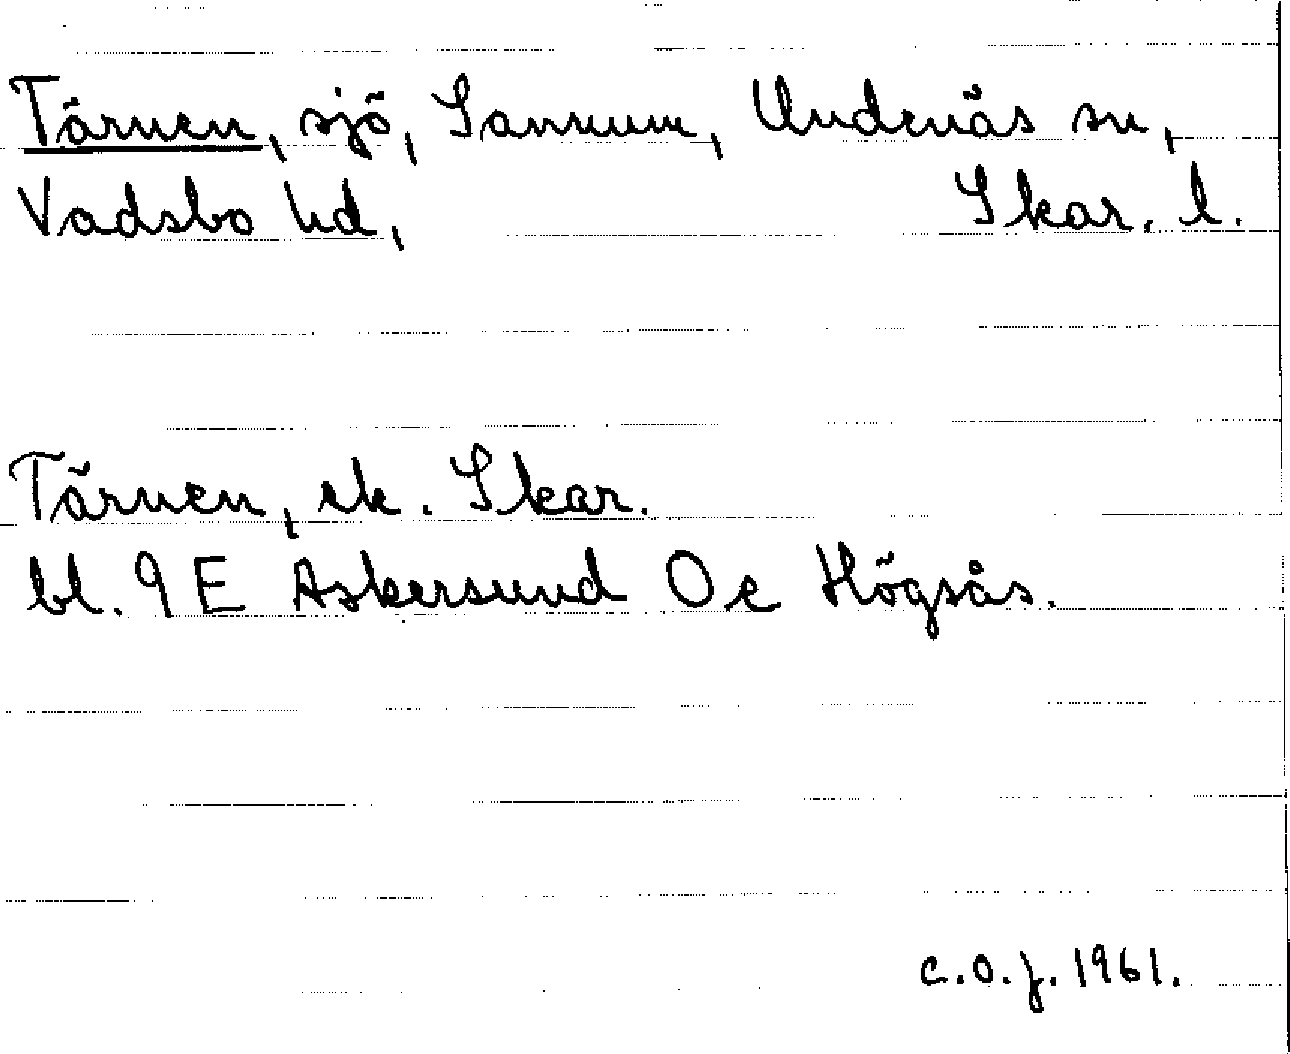 Tärnen, sjö, Sannum, Undenäs sn,
Vadsbo hd, Skar. l.
Tärnen, ek. Skar.
bl. 9 E Askersund O e Högsås.
C.O.J. 1961.